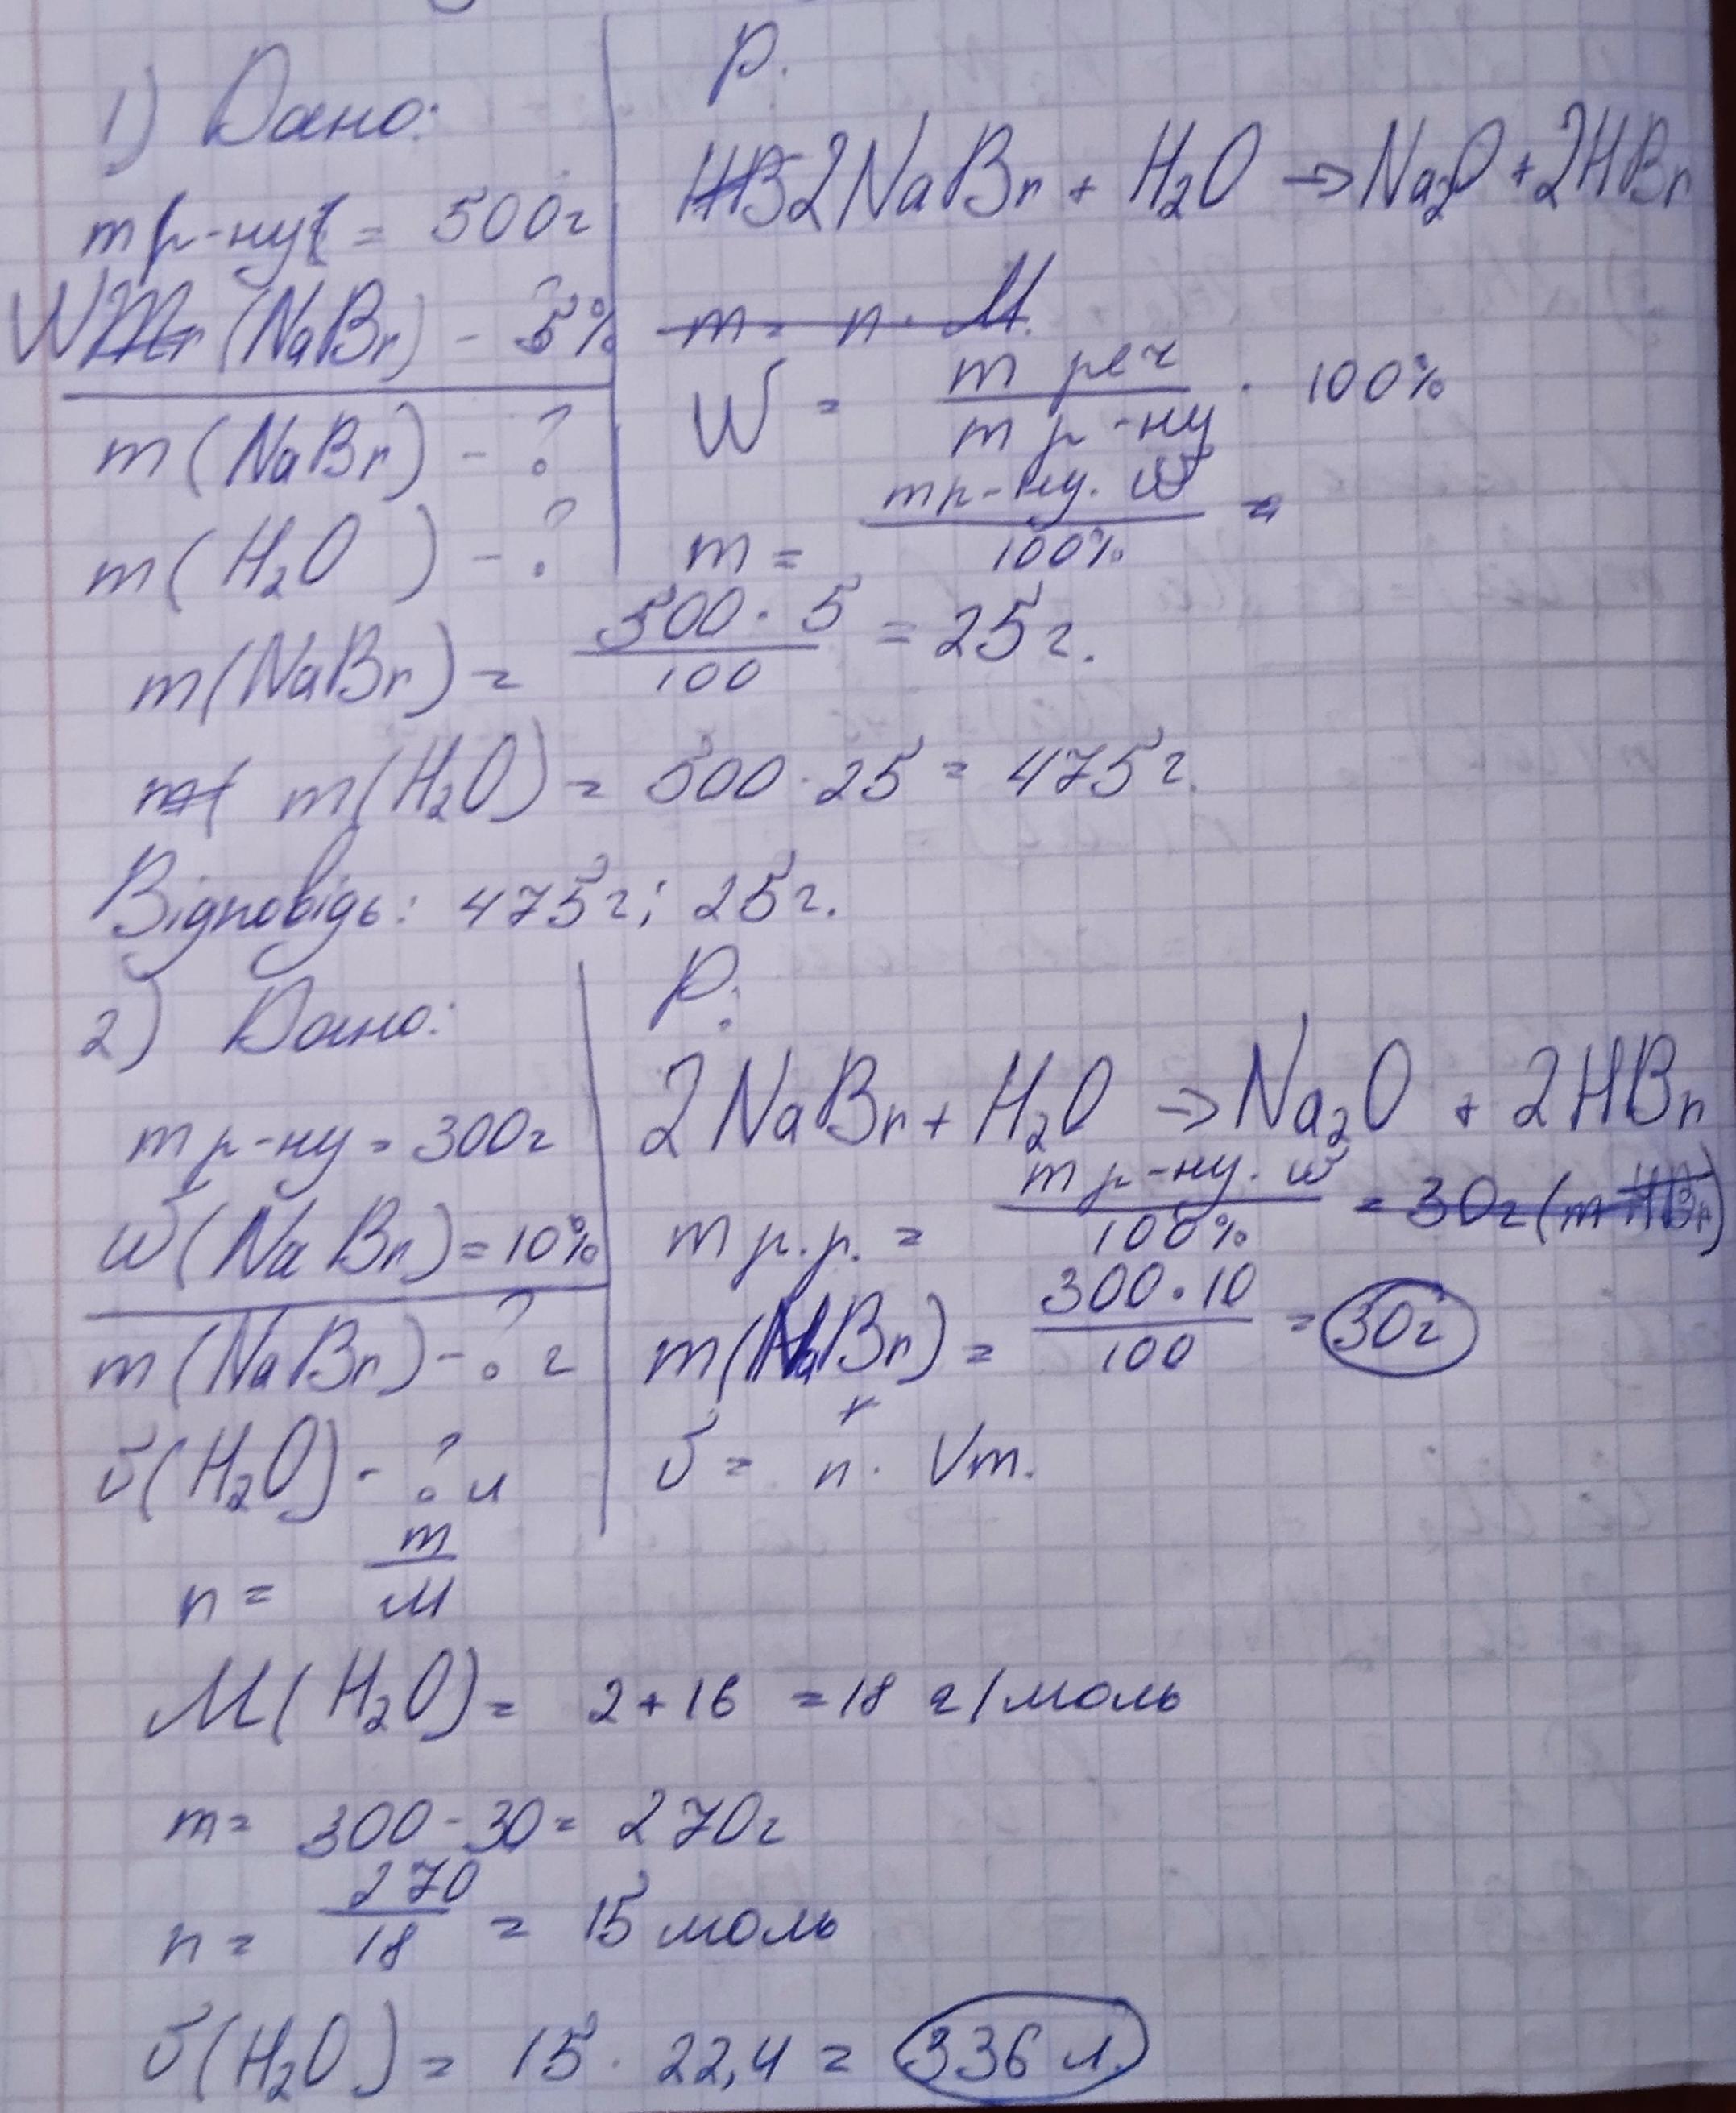 1) Дано:
m р-ну = 500г
W (NaBr) - 5%
m (NaBr) - ?
m (H₂O) - ?
Р.
2NaBr + H₂O → Na₂O + 2HBr
m = n · M
W = m реч / m р-ну · 100%
m = m р-ну · w / 100% =
m (NaBr) = 500 · 5 / 100 = 25г.
m (H₂O) = 500 - 25 = 475г.
Відповідь: 475г; 25г.
2) Дано:
m р-ну = 300г
w (NaBr) = 10%
m (NaBr) - ? г
v (H₂O) - ? л
Р.
2NaBr + H₂O → Na₂O + 2HBr
m р.р. = m р-ну · w / 100% = 30г (m HBr)
m (NaBr) = 300 · 10 / 100 = 30г
v = n · Vm.
n = m / M
M (H₂O) = 2 + 16 = 18 г/моль
m = 300 - 30 = 270г
n = 270 / 18 = 15 моль
v (H₂O) = 15 · 22,4 = 336 л.